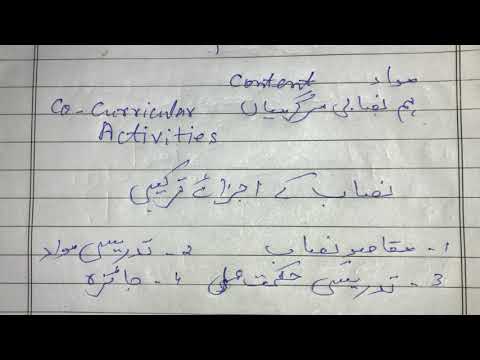 مواد Content
ہم نصابی سرگرمیاں Co-Curricular
Activities
نصاب کے اجزائے ترکیبی
1- مقاصد نصاب 2- تدریسی مواد
3- تدریسی حکمت عملی 4- جائزہ